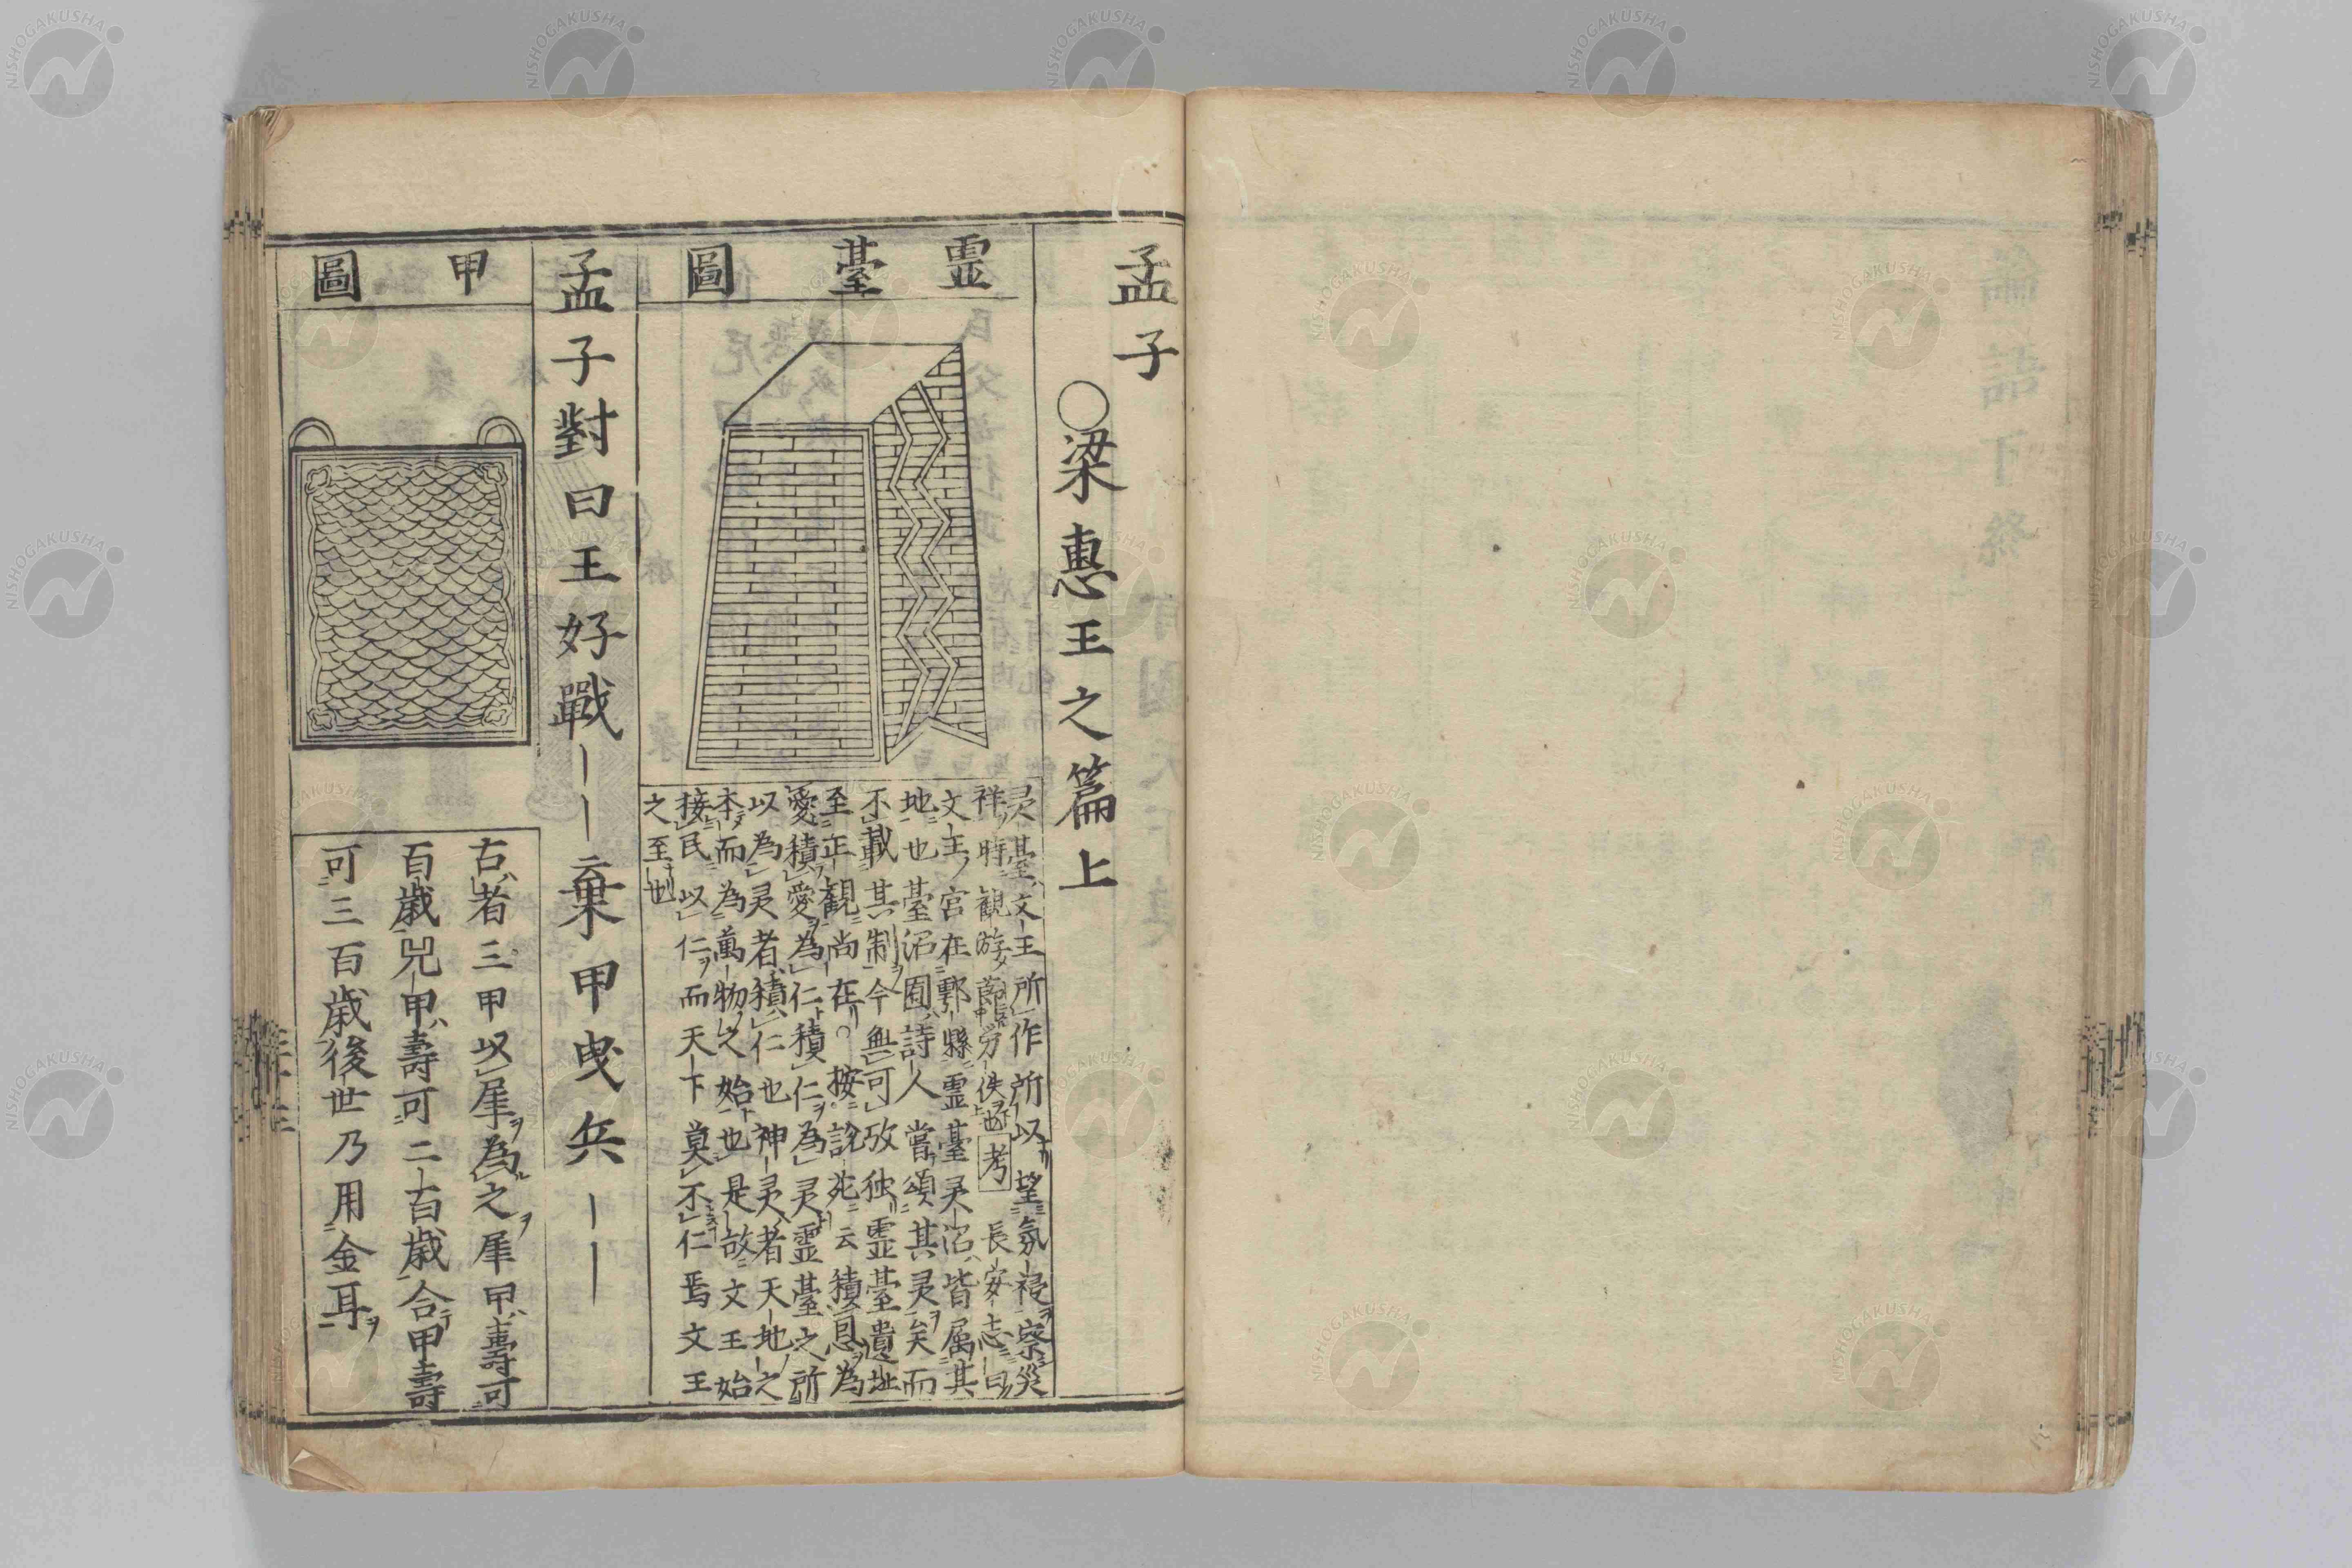 孟子
○梁惠王之篇上
霊臺圖
灵臺文王所作所以望氛祲察災
祥時観游節勞佚也考長安志曰
文王宮在鄠縣霊臺灵沼皆属其
地也臺沼囿詩人嘗頌其灵矣而
不載其制今無可攷独霊臺遺址
至正観尚在○按説苑云積恩為
愛積愛為仁積仁為灵霊臺之所
以為灵者積仁也神灵者天地之
本而為萬物之始也是故文王始
接民以仁而天下莫不仁焉文王
之至也
孟子對曰王好戰――棄甲曳兵――
甲圖
古者三甲以犀為之犀甲壽可
百歳兕甲壽可二百歳合甲壽
可三百歳後世乃用金耳
論語下終
NISHOGAKUSHA